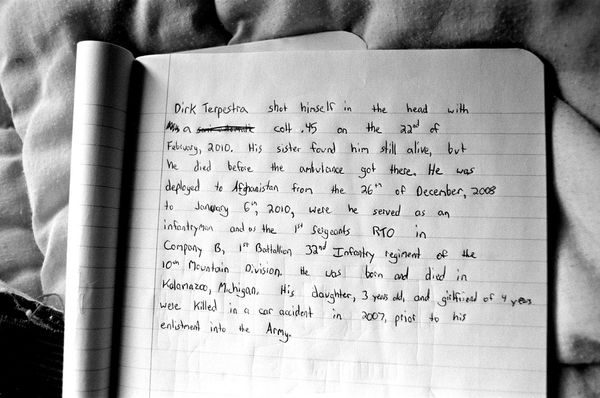 Dirk Terpestra shot himself in the head with
a colt .45 on the 22nd of
February, 2010. His sister found him still alive, but
he died before the ambulance got there. He was
deployed to Afghanistan from the 26th of December, 2008
to January 6th, 2010, were he served as an
infantryman and as the 1st Sergeants RTO in
Company B, 1st Battalion 32nd Infantry regiment of the
10th Mountain Division. He was born and died in
Kalamazoo, Michigan. His daughter, 3 years old, and girlfriend of 4 years
were killed in a car accident in 2007, prior to his
enlistment into the Army.